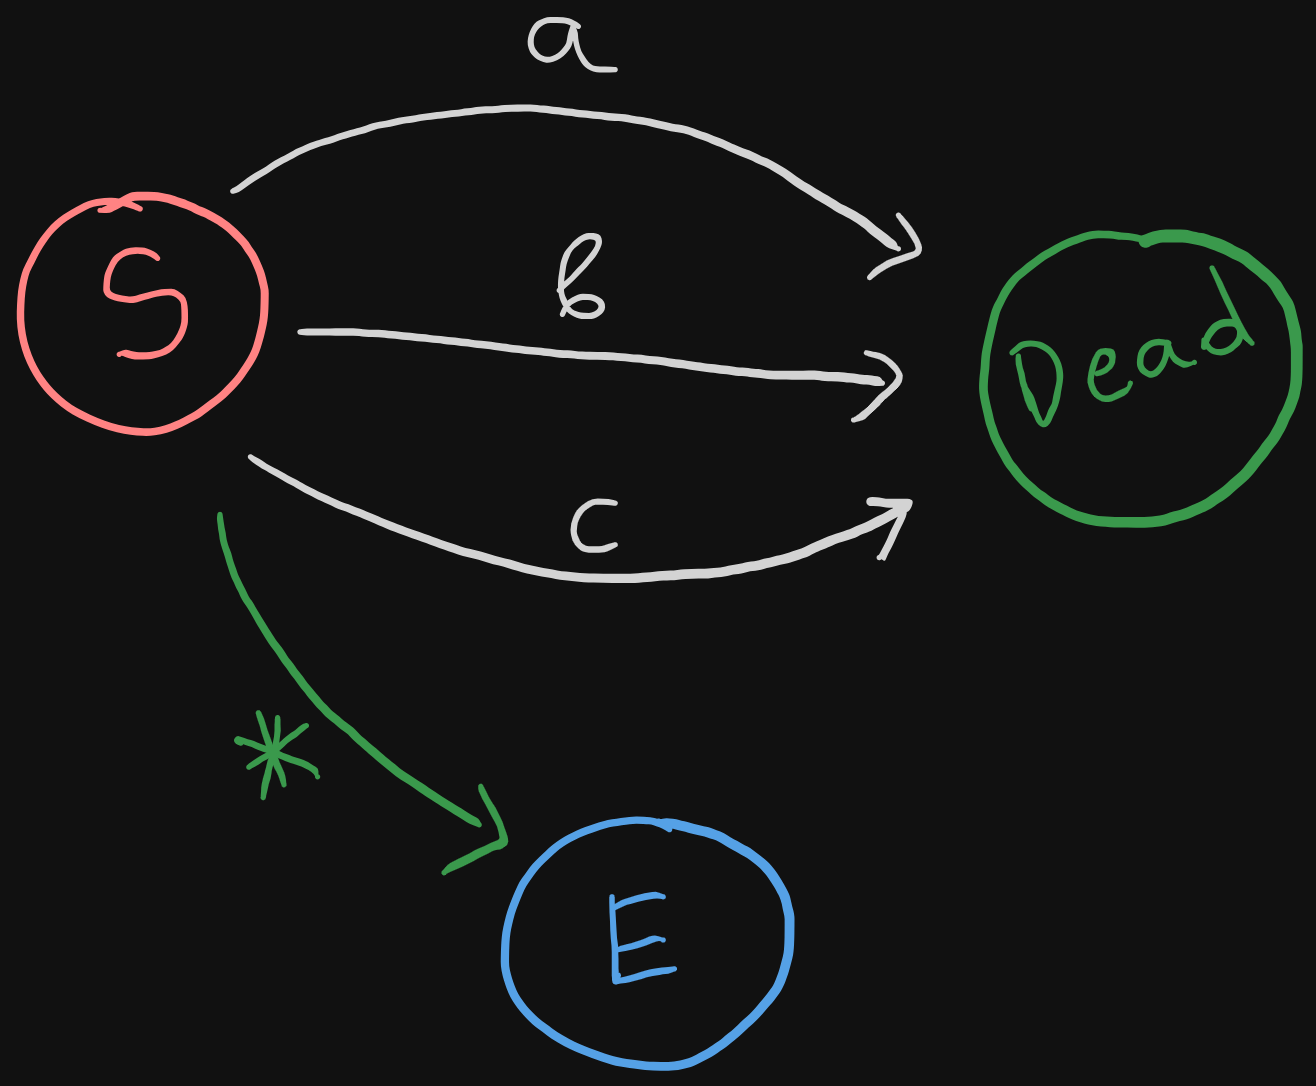 a
S
b
Dead
c
*
E